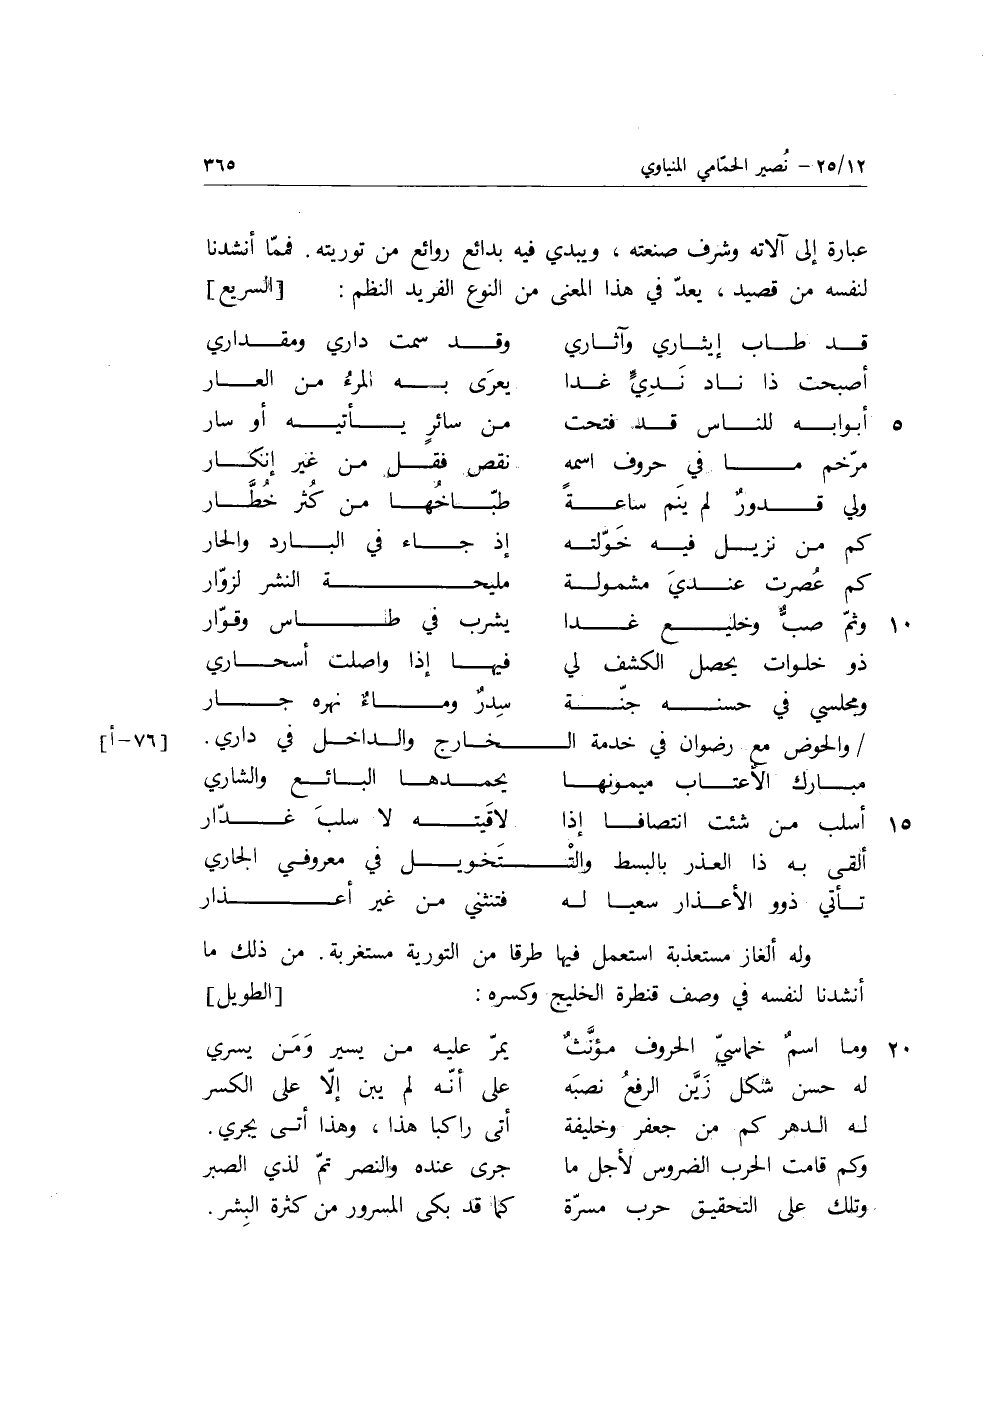 ٢٥/١٢ – نُصير الحمّامي المنياوي ٣٦٥
عبارة إلى آلاته وشرف صنعته ، ويبدي فيه بدائع روائع من توريته . فممّا أنشدنا
لنفسه من قصيد ، يعدّ في هذا المعنى من النوع الفريد النظم : [السريع]
قد طاب إيثاري وآثاري وقد سمت داري ومقداري
أصبحت ذا ناد نَدِيٍّ غدا يعرَى به المرءُ من العار
٥ أبوابه للناس قد فتحت من سائرٍ يأتيه أو سار
مرّخم ما في حروف اسمه نقص فقل من غير إنكار
ولي قدورٌ لم يَنَم ساعةً طبّاخُها من كُثر خُطَّار
كم من نزيل فيه خَوّلته إذ جاء في البارد والحار
كم عُصرت عنديَ مشمولة مليحة النشر لزوّار
١٠ وثمّ صبٌّ وخليع غدا يشرب في طاس وقوّار
ذو خلوات يحصل الكشف لي فيها إذا واصلت أسحاري
ومجلسي في حسنه جنّة سِدرٌ وماءٌ نهره جار
/ والحوض مع رضوان في خدمة الخارج والداخل في داري . [٧٦–أ]
مبارك الأعتاب ميمونها يحمدها البائع والشاري
١٥ أسلب من شئت انتصافا إذا لاقَيته لا سلبَ غدّار
ألقى به ذا العذر بالبسط والْتَخويل في معروفي الجاري
تأتي ذوو الأعذار سعيا له فتنثني من غير أعذار
وله ألغاز مستعذبة استعمل فيها طرقا من التورية مستغربة . من ذلك ما
أنشدنا لنفسه في وصف قنطرة الخليج وكسره : [الطويل]
٢٠ وما اسمٌ خماسيّ الحروف مؤنَّثٌ يمرّ عليه من يسير وَمَن يسري
له حسن شكل زَيَّن الرفعُ نصبَه على أنّه لم يبن إلّا على الكسر
له الدهر كم من جعفر وخليفة أتى راكبا هذا ، وهذا أتى يجري .
وكم قامت الحرب الضروس لأجل ما جرى عنده والنصر تمّ لذي الصبر
وتلك على التحقيق حرب مسرّة كما قد بكى المسرور من كثرة البِشر .